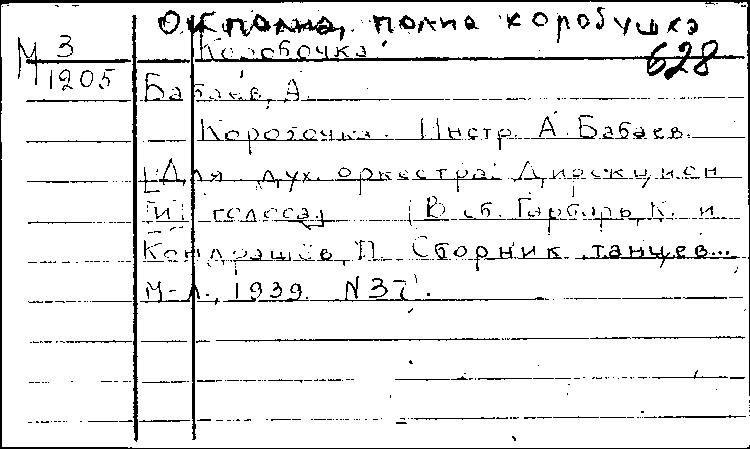 Ой полна, полна коробушка
Коробочка.
М 3
1205
628
Бабаев, А.
Коробочка. Инстр. А. Бабаев.
[Для дух. оркестра. Дирекцион
[и] голоса] (В сб. Горбарь, К. и
Кондрашёв, П. Сборник танцев...
М-Л., 1939. N 37).